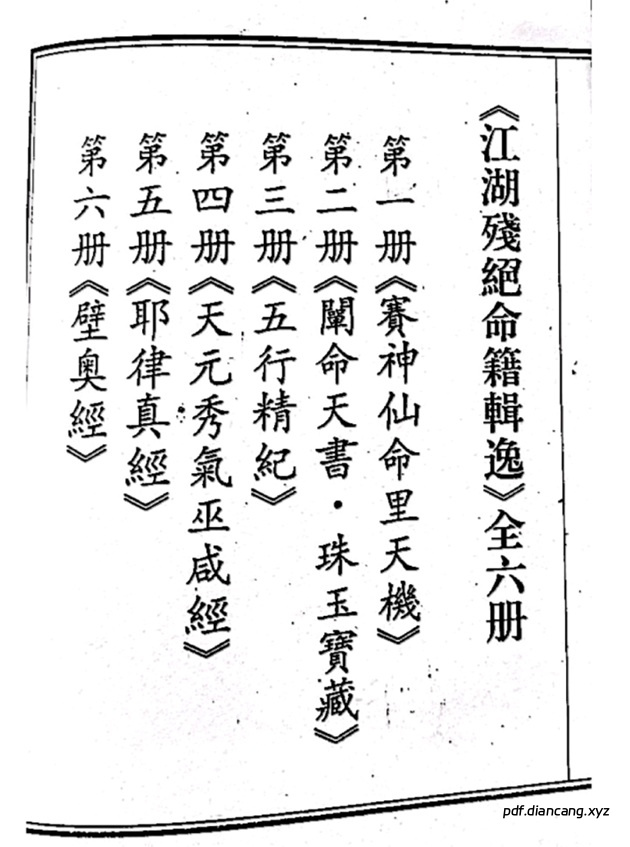 《江湖殘絕命籍輯逸》全六册
第一册《賽神仙命里天機》
第二册《闡命天書·珠玉寶藏》
第三册《五行精紀》
第四册《天元秀氣巫咸經》
第五册《耶律真經》
第六册《壁奥經》
pdf.diancang.xyz